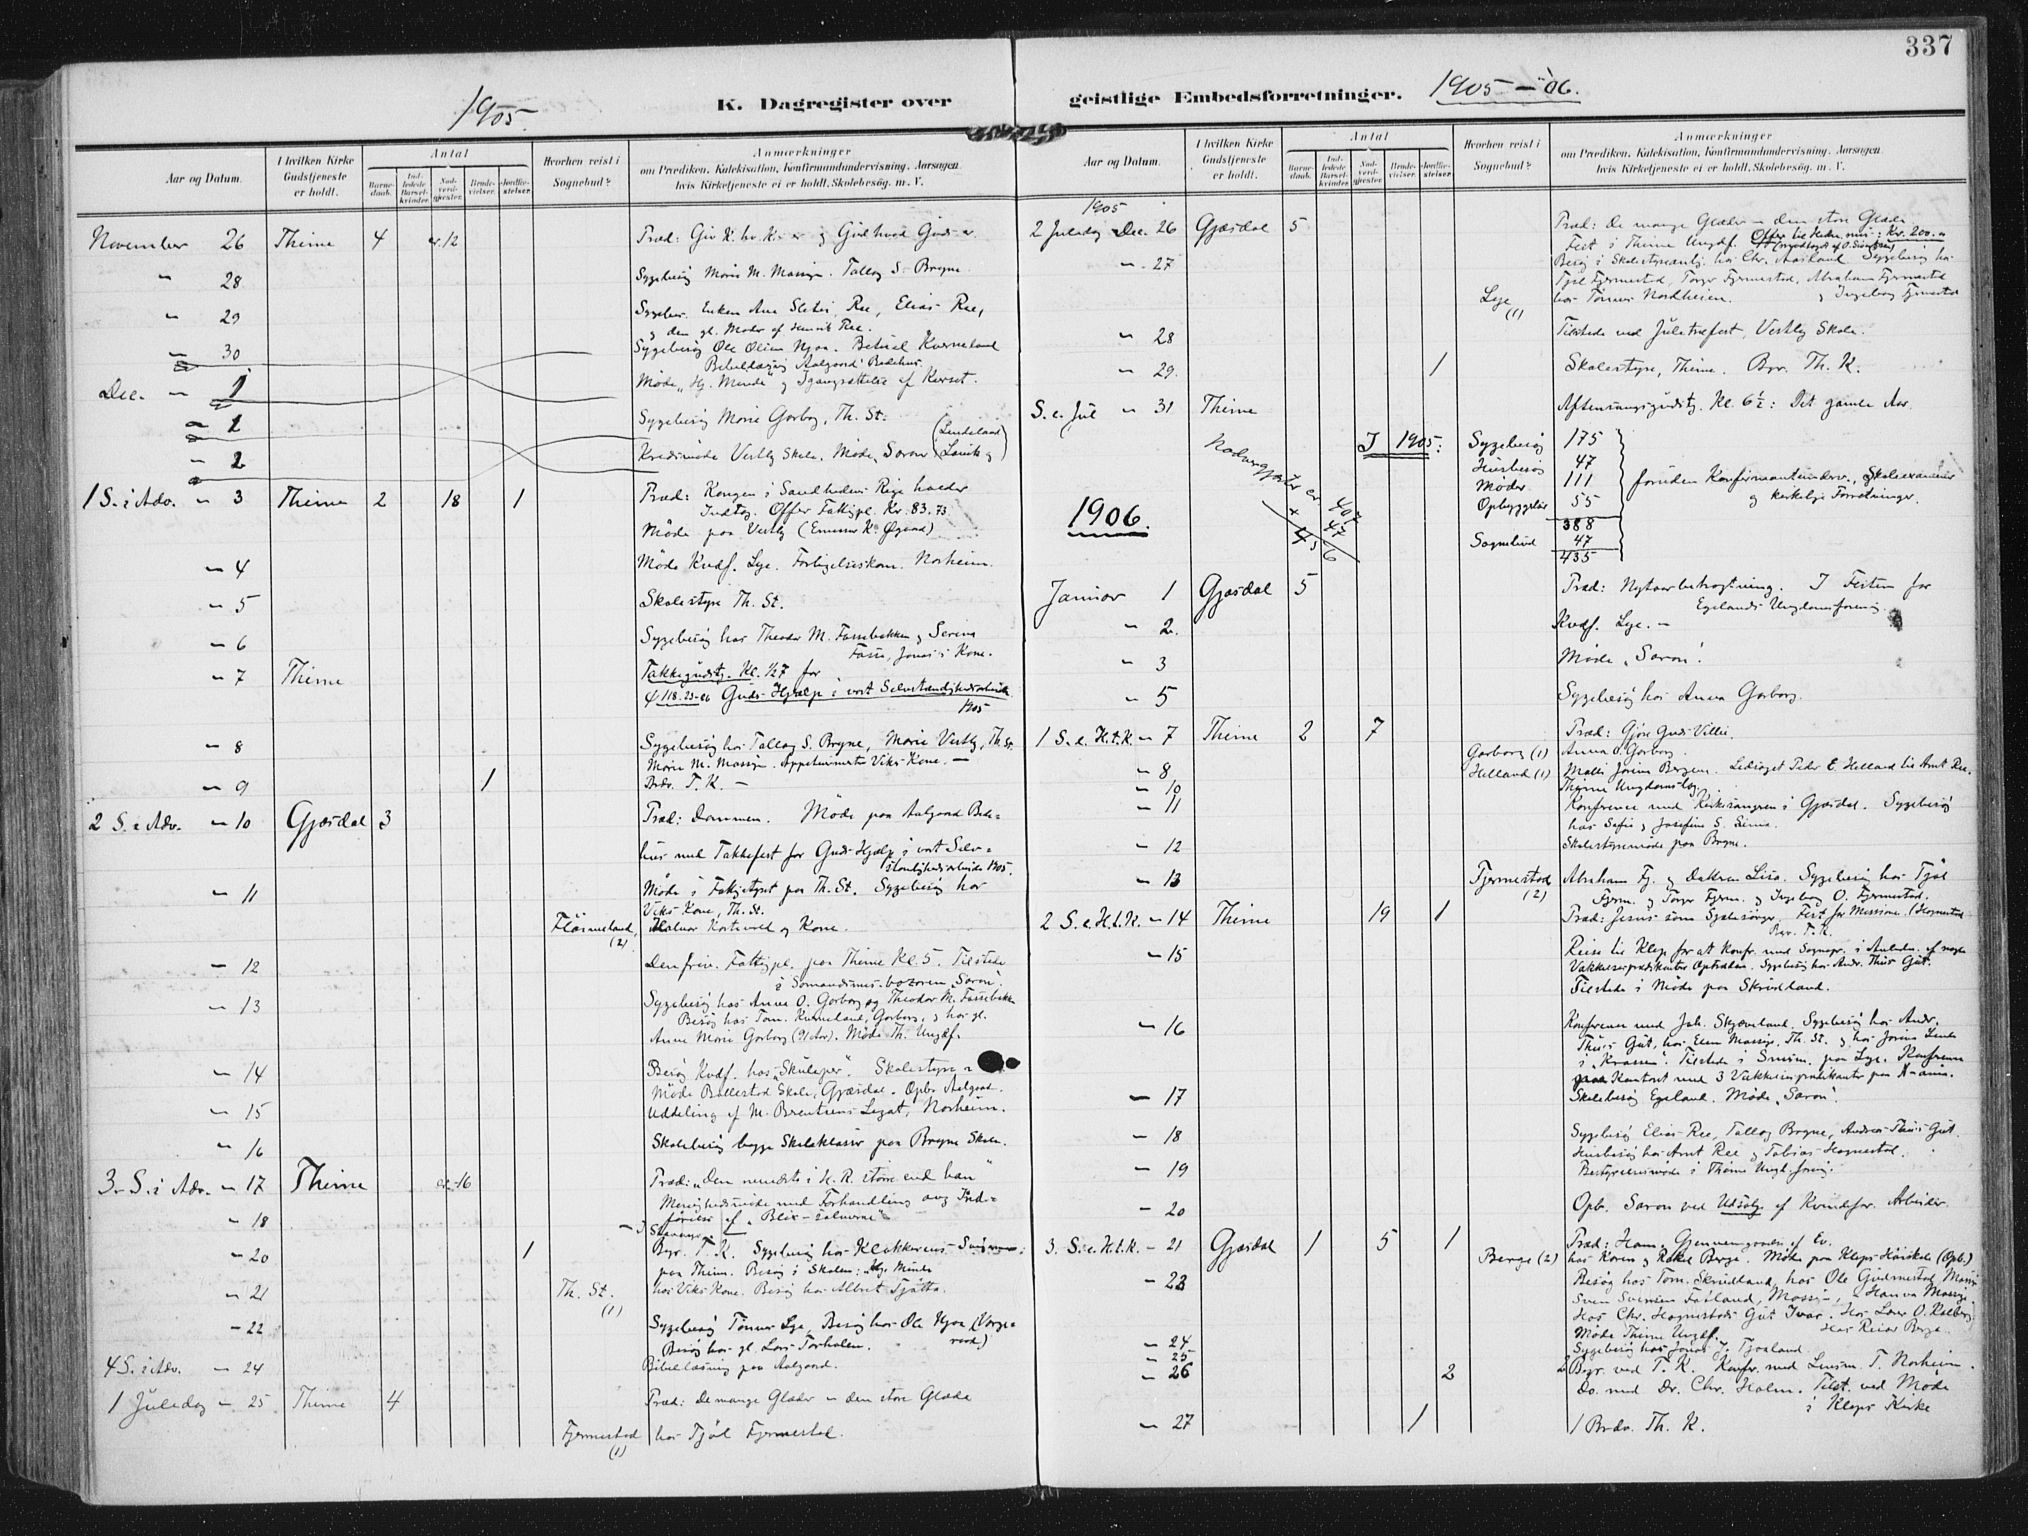 337
1905.
K. Dagregister over
geistlige Embedsforretninger.
1905-06.
Aar og Datum.
I hvilken Kirke Gudstjeneste er holdt.
Antal
Barnedaab.
Indledede Barselkvinder.
Nadverdgjester.
Brudevielser.
Jordfæstelser.
Hvorhen reist i Sognebud?
Anmærkninger
om Prædiken, Katekisation, Konfirmandundervisning, Aarsagen,
hvis Kirketjeneste ei er holdt, Skolebesøg. m. V.
November 26 Thime 4 12
Præd: Giv K. hv. K. er og Gud hvad Guds er
" 28 Sygebesøg Marie M. Mossige. Tallag S. Bryne.
" 29 Ree, Elias Ree,
og den gl. Moder af Henrik Ree.
" 30 Sygebesøg Ole Olsen Njaa. Betsael Kverneland
Bibellæsning Aalgaard Bedehus.
Dec. " 1 Møde "Hj. Minde" og Igangsættelse af
" 1 Sygebesøg Marie Garborg, Th. St.
" 2 Kredsmøde Vestly Skole. Møde "Saron
1 S. i Adv. " 3 Thime 2 18 1
Præd: Kongen i Sandhedens Rige holder
Indtog. Offer Fattigpl. Kr. 83.73
Møde paa Vestly
" 4 Møde Kvdf. Lye. Forligelseskom. Norheim.
" 5 Skolestyre Th. St.
" 6 Sygebesøg hos Theodor M. Fossebakken og Serine
Fosse, Jonas's Kone.
" 7 Thime Takkegudstj. Kl. 1/2 7 for
Guds Hjælp i vort Selvstændighedsarbeide
1905
" 8 Sygebesøg hos Tallag S. Bryne, Marie Vestly, Th. St.
Marie M. Mossige. Viks Kone. —
" 9 1 Brdv. T. K. —
2 S. i Adv. " 10 Gjæsdal 3
Præd: Dommen. Møde paa Aalgaard Bede=
hus med Takkefest for Guds Hjælp i vort Selv=
stændighedsarbeide 1905.
" 11 Møde i Fattigstyret paa Th. St. Sygebesøg hos
Viks Kone, Th. St.
(2) Halvor og Kone.
" 12 Den friv. Fattigpl. paa Thime Kl. 5. Tilstede
i Sømandsmis. bazaren "Saron".
" 13 Sygebesøg hos Anna O. Garborg og Theodor M. Fossebakke
Besøg hos Tom. Kverneland, Garborg, og hos gl.
Anne Marie Garborg (91 Aar). Møde Th. Ungdf.
" 14 Besøg Kvdf. hos "Skulaper". Skolestyre=
Møde Bollestad Skole, Gjæsdal. Opb. Aalgaard.
" 15 Uddeling af M. Brentsens Legat, Norheim.
" 16 Skolebesøg begge Skoleklasser paa Bryne Skole.
3. S. i Adv. " 17 Thime 16
Præd: "Den mindste i H. R. større end han"
Menighedsmøde med Forhandling ang Ind=
førelse af "Blix-salmerne"
" 18
" 20 1 Bgr. T. K. Sygebesøg hos Klokkerens
paa Thime. Besøg i Skolen: Hj. Minde
" 21 Th. St. (1) hos Viks Kone. Besøg hos Albert Tjøtta.
" 22 Sygebesøg Tønnes Lye, Besøg hos Ole Njaa (Verge=
raad)
Besøg hos gl. Lars Torholen.
4 S. i Adv. " 24 Bibellæsning paa Aalgaard.
1 Juledag " 25 Thime 4 Præd: De mange Glæder - den store Glæde
Fjermestad (1) hos Tjøl Fjermestad.
Aar og Datum.
I hvilken Kirke Gudstjeneste er holdt.
Antal
Barnedaab.
Indledede Barselkvinder.
Nadverdgjester.
Brudevielser.
Jordfæstelser.
Hvorhen reist i Sognebud?
Anmærkninger
om Prædiken, Katekisation, Konfirmandundervisning, Aarsagen,
hvis Kirketjeneste ei er holdt, Skolebesøg. m. V.
1905
2 Juledag Dec. 26 Gjæsdal 5
Præd: De mange Glæder - den store Glæde
Fest i Thime Ungdf. Offer til Hedn. mis: Kr. 200.
" 27 Besøg i hos Chr. Aasland. Sygebesøg hos
Tjøl Fjermestad, Torger Fjermestad, Abraham Fjermestad
og Ingeborg Fjermestad
Lye (1) hos Tønnes Nordheim.
" 28 Tilstede ved Juletræfest, Vestly Skole.
" 29. 1 Skolestyre, Thime. Bgr. Th. K.
S. e. Jul " 31 Thime Aftensangsgudstj. Kl. 6 1/2: Det gamle Aar.
I 1905:
Sygebesøg 175
Husbesøg 47
Møder 111
Opbyggelser 55
388
Sognebud 47
435
foruden Konfirmantunderv., Skoleexamener
og kirkelige Forretninger.
407
+ 47
456
1906.
Januar 1 Gjæsdal 5 Præd: Nytaarbetragtning. I Festen for
Egelands Ungdomsforening.
" 2. Kvdf. Lye. —
" 3 Møde "Saron".
" 5 Sygebesøg hos Anna Garborg.
1 S. e. H.t.K. " 7 Thime 2 7 Præd: Gjøre Guds Villie.
Garborg (1) Anna O. Garborg.
" 8 Helland (1) Malli Jorine Bergem. Ledsaget Peder E. Helland til Arnt Ree.
" 10 Thime Ungdomslag.
" 11 Konference med Kirkesangeren i Gjæsdal. Sygebesøg
hos Sofie og Josefine S.
" 12 Skolestyremøde paa Bryne.
" 13 Fjermestad (2) Abraham Fj. og Datteren Lisa. Sygebesøg hos Tjøl
Fjerm. og Torger Fjerm. og Ingeborg O. Fjermestad.
2 S. e. H.t.K. " 14 Thime 19 1 Præd: Jesus som Fest for Missionen (Hognestad
Bgr. T. K.
" 15 Reise til Klep for at Konfr. med Sognepr. i Anledn. af nogle
Vækkelsesprædikanters Optræden. Sygebesøg hos Andr. Thu's Gut.
Tilstede i Møde paa Skrudland.
" 16 Konference med Joh. Skjæveland. Sygebesøg hos Andr.
Thu's Gut, hos Elen Mossige, Th. St. og hos Jorine Lende
i "Krossen". Tilstede i paa Lye. Konference
paa Kontoret med 3 Vækkelsesprædikanter paa
" 17 Skolebesøg Egeland. Møde "Saron".
" 18 Sygebesøg Elias Ree, Tallag Bryne, Andreas Thu's Gut.
" 19 Husbesøg hos Arnt Ree og Tobias Hognestad.
Bestyrelsesmøde i Thime Ungd. foren.
" 20 Opb. Saron ved Udsalg af Kvindefor. Arbeider.
3. S. e. H.t.K. " 21 Gjæsdal 1 5 1 Præd: Ham. Gjenvengangen af Ev.
Berge (2) hos Karen og Rakel Berge. Møde paa Kleps Høiskole (Opb.)
" 23 Besøg hos Tom. Skrudland, hos Ole Gudmestad, Mossige
Sven Svensen Fosland, Mossige, Hanna Mossige
Hos Chr. Hognestads Gut Ivar. Hos Lars O. Kalberg
Hos Reiar Berge
" 24 Møde Thime Ungdf.
" 25 Sygebesøg hos Jonas T. Tjaaland.
" 26 2 2 Bgr. ved T. K. Konfer. med Lensm. T. Norheim.
Do. med Dr. Chr. Holm. Tilst. ved Møde
i Kleps Kirke
" 27 1 1 Brdv. Th. K.